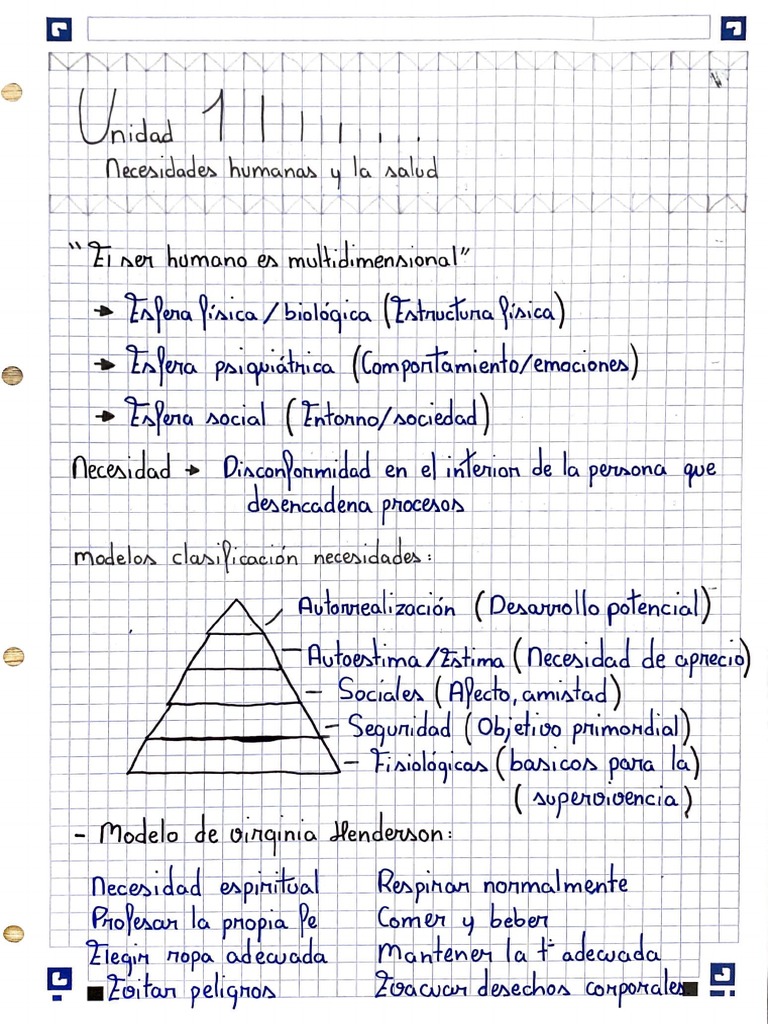 Unidad 1
Necesidades humanas y la salud
"El ser humano es multidimensional"
→ Esfera física / biológica (Estructura física)
→ Esfera psiquiátrica (Comportamiento/emociones)
→ Esfera social (Entorno/sociedad)
Necesidad → Disconformidad en el interior de la persona que
desencadena procesos
modelos clasificación necesidades:
Autorrealización (Desarrollo potencial)
Autoestima/Estima (Necesidad de aprecio)
Sociales (Afecto, amistad)
Seguridad (Objetivo primordial)
Fisiológicas (basicos para la)
(supervivencia)
- Modelo de virginia Henderson:
Necesidad espiritual
Profesar la propia fe
Elegir ropa adecuada
Evitar peligros
Respirar normalmente
Comer y beber
Mantener la tª adecuada
Evacuar desechos corporales